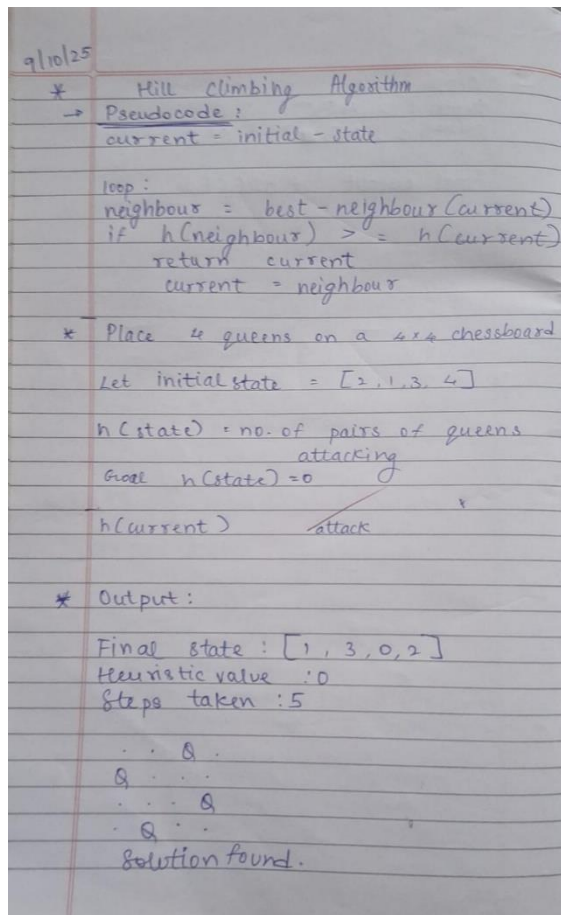 9/10/25
* Hill climbing Algorithm
→ Pseudocode :
current = initial - state
loop :
neighbour = best - neighbour (current)
if h(neighbour) > = h(current)
return current
current = neighbour
* Place 4 queens on a 4x4 chessboard
Let initial state = [2, 1, 3, 4]
h(state) = no. of pairs of queens
attacking
Goal h(state) = 0
h(current) attack
* Output :
Final state : [1, 3, 0, 2]
Heuristic value : 0
Steps taken : 5
. . Q .
Q . . .
. . . Q
. Q . .
Solution found.